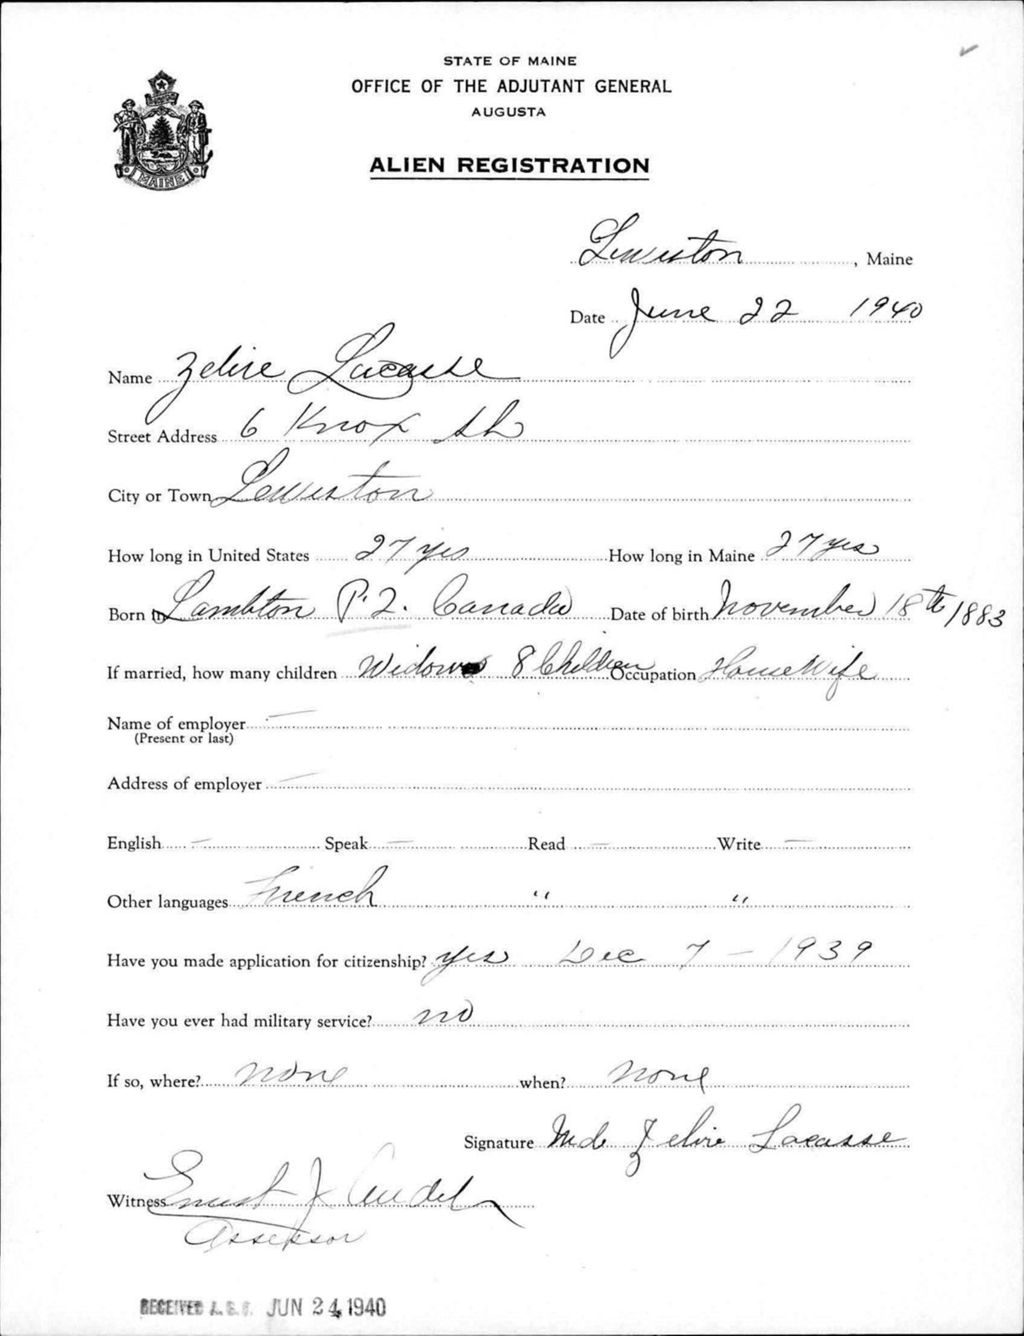 STATE OF MAINE
OFFICE OF THE ADJUTANT GENERAL
AUGUSTA
MAINE
ALIEN REGISTRATION
Lewiston, Maine
Date June 22 1940
Name Zelire Lacasse
Street Address 6 Knox St
City or Town Lewiston
How long in United States 27 yrs How long in Maine 27 yrs
Born in Lambton P.Q. Canada Date of birth November 18th 1883
If married, how many children Widow 8 Children Occupation HouseWife
Name of employer —
(Present or last)
Address of employer —
English — Speak — Read — Write —
Other languages French " "
Have you made application for citizenship? yes Dec 7 - 1939
Have you ever had military service? no
If so, where? none when? none
Signature Md Zelire Lacasse
Witness Ernest J
Assessor
RECEIVED A.G.O. JUN 24 1940